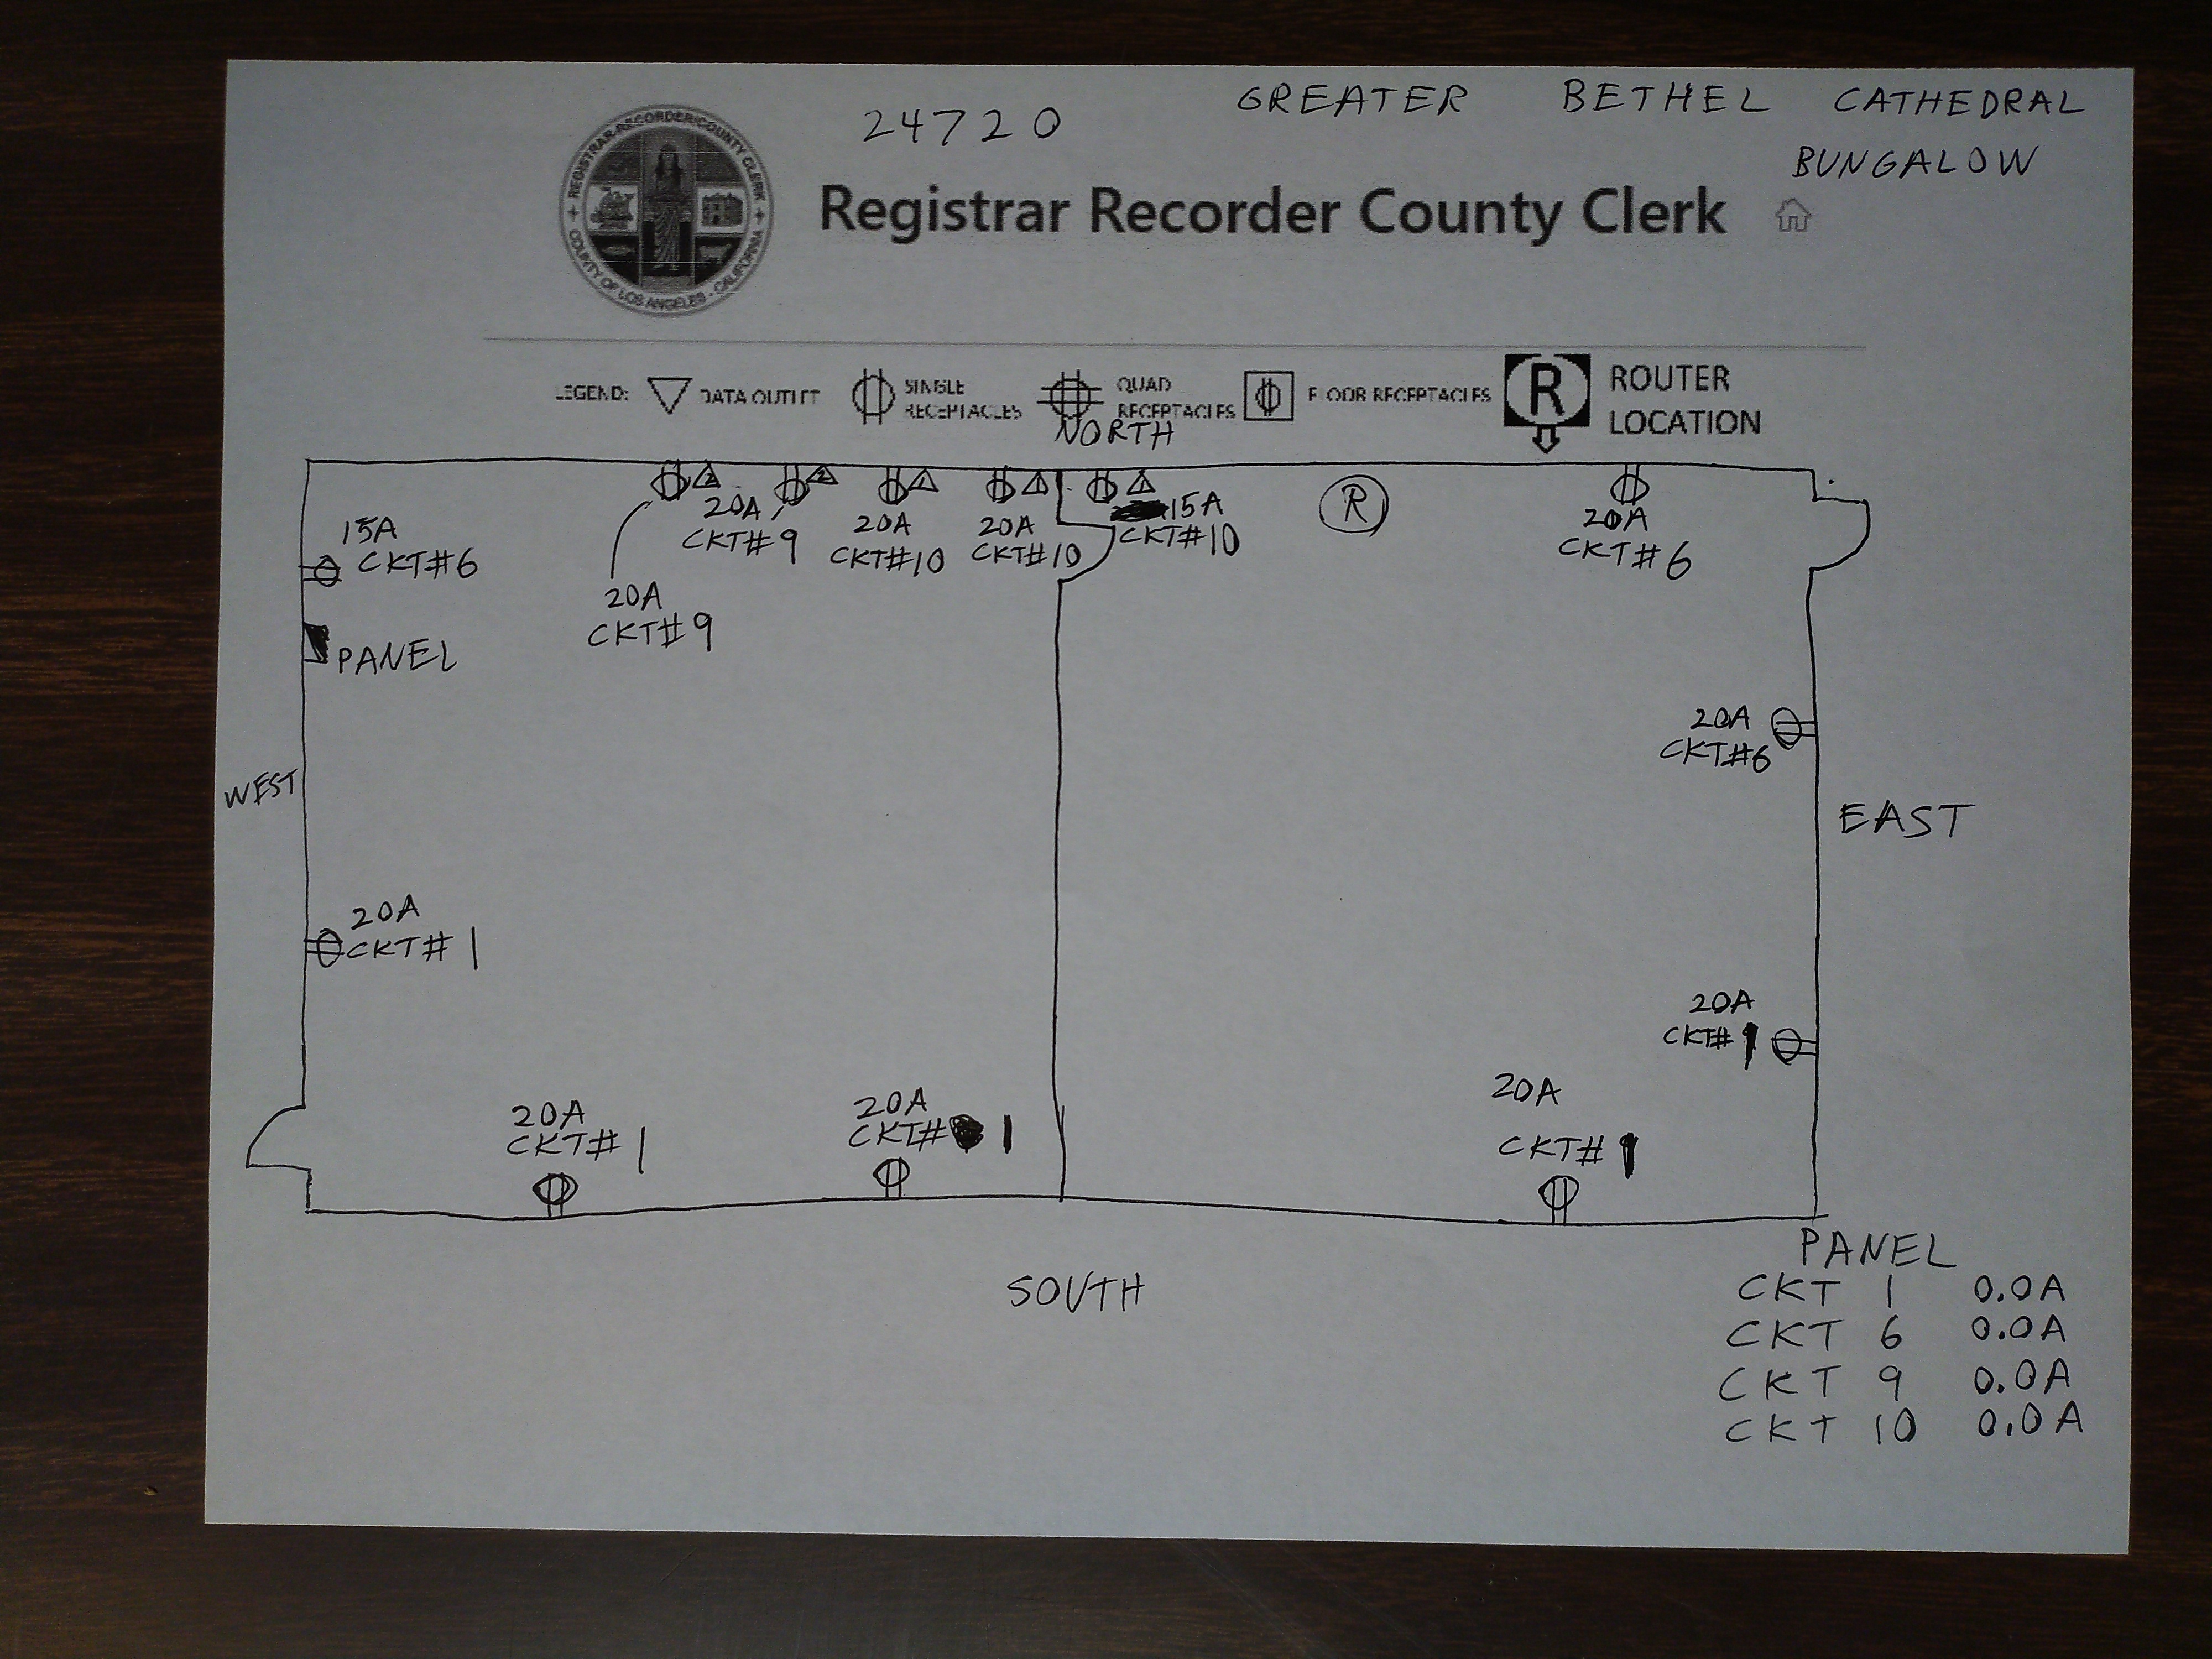 24720
GREATER BETHEL CATHEDRAL
BUNGALOW
REGISTRAR-RECORDER/COUNTY CLERK
COUNTY OF LOS ANGELES - CALIFORNIA
Registrar Recorder County Clerk
LEGEND: DATA OUTLET
SINGLE
RECEPTACLES
QUAD
RECEPTACLES
FLOOR RECEPTACLES
R
ROUTER
LOCATION
NORTH
15A
CKT#6
20A
CKT#9
20A
CKT#9
20A
CKT#10
20A
CKT#10
15A
CKT#10
R
20A
CKT#6
PANEL
20A
CKT#6
WEST
EAST
20A
CKT#1
20A
CKT#1
20A
CKT#1
20A
CKT#1
20A
CKT#1
SOUTH
PANEL
CKT 1 0.0A
CKT 6 0.0A
CKT 9 0.0A
CKT 10 0.0A